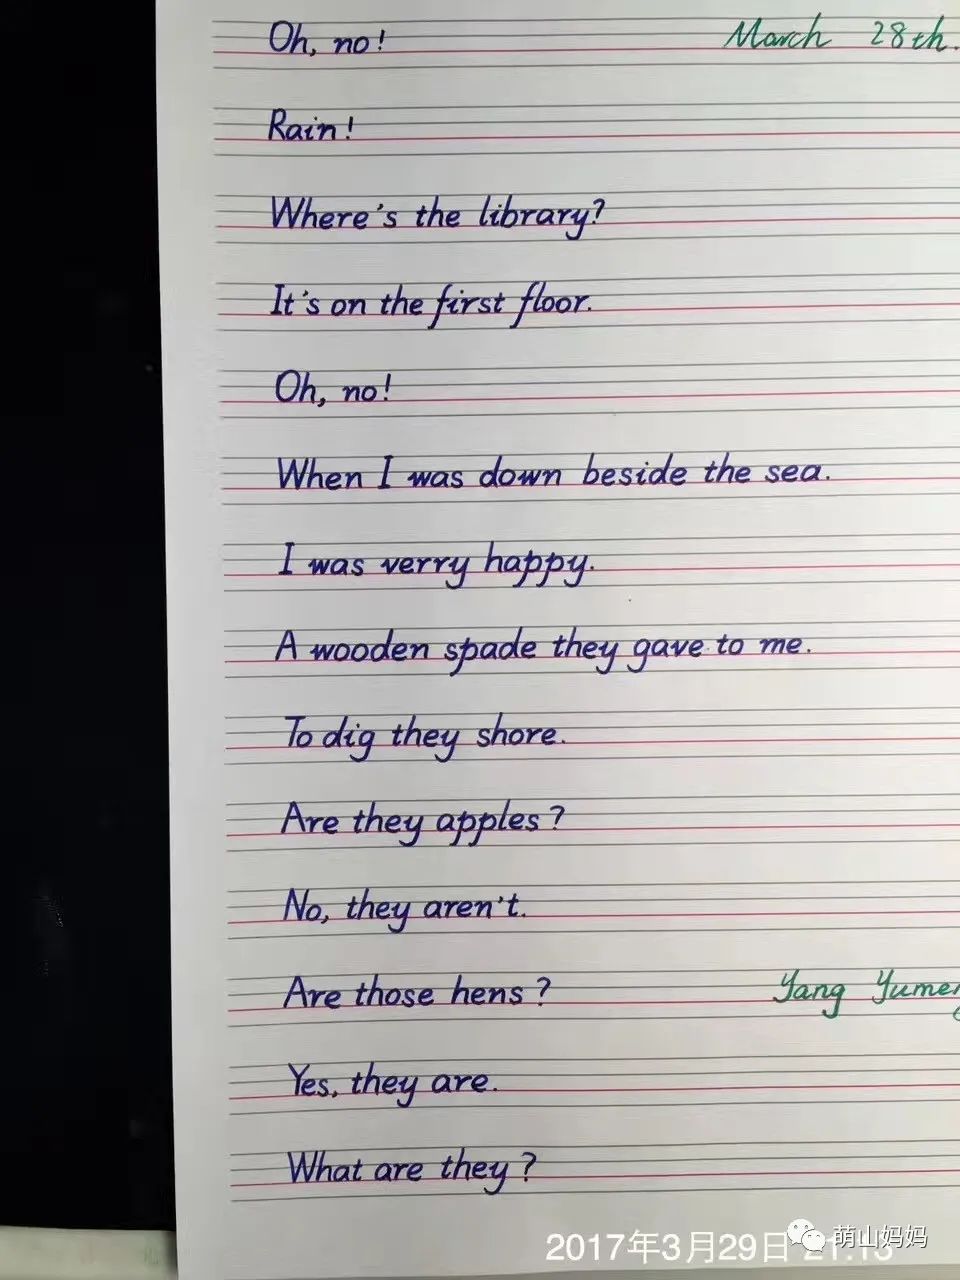 Oh, no! March 28th.
Rain!
Where's the library?
It's on the first floor.
Oh, no!
When I was down beside the sea.
I was verry happy.
A wooden spade they gave to me.
To dig they shore.
Are they apples?
No, they aren't.
Are those hens? Yang
Yes, they are.
What are they?
2017年3月29日
萌山妈妈